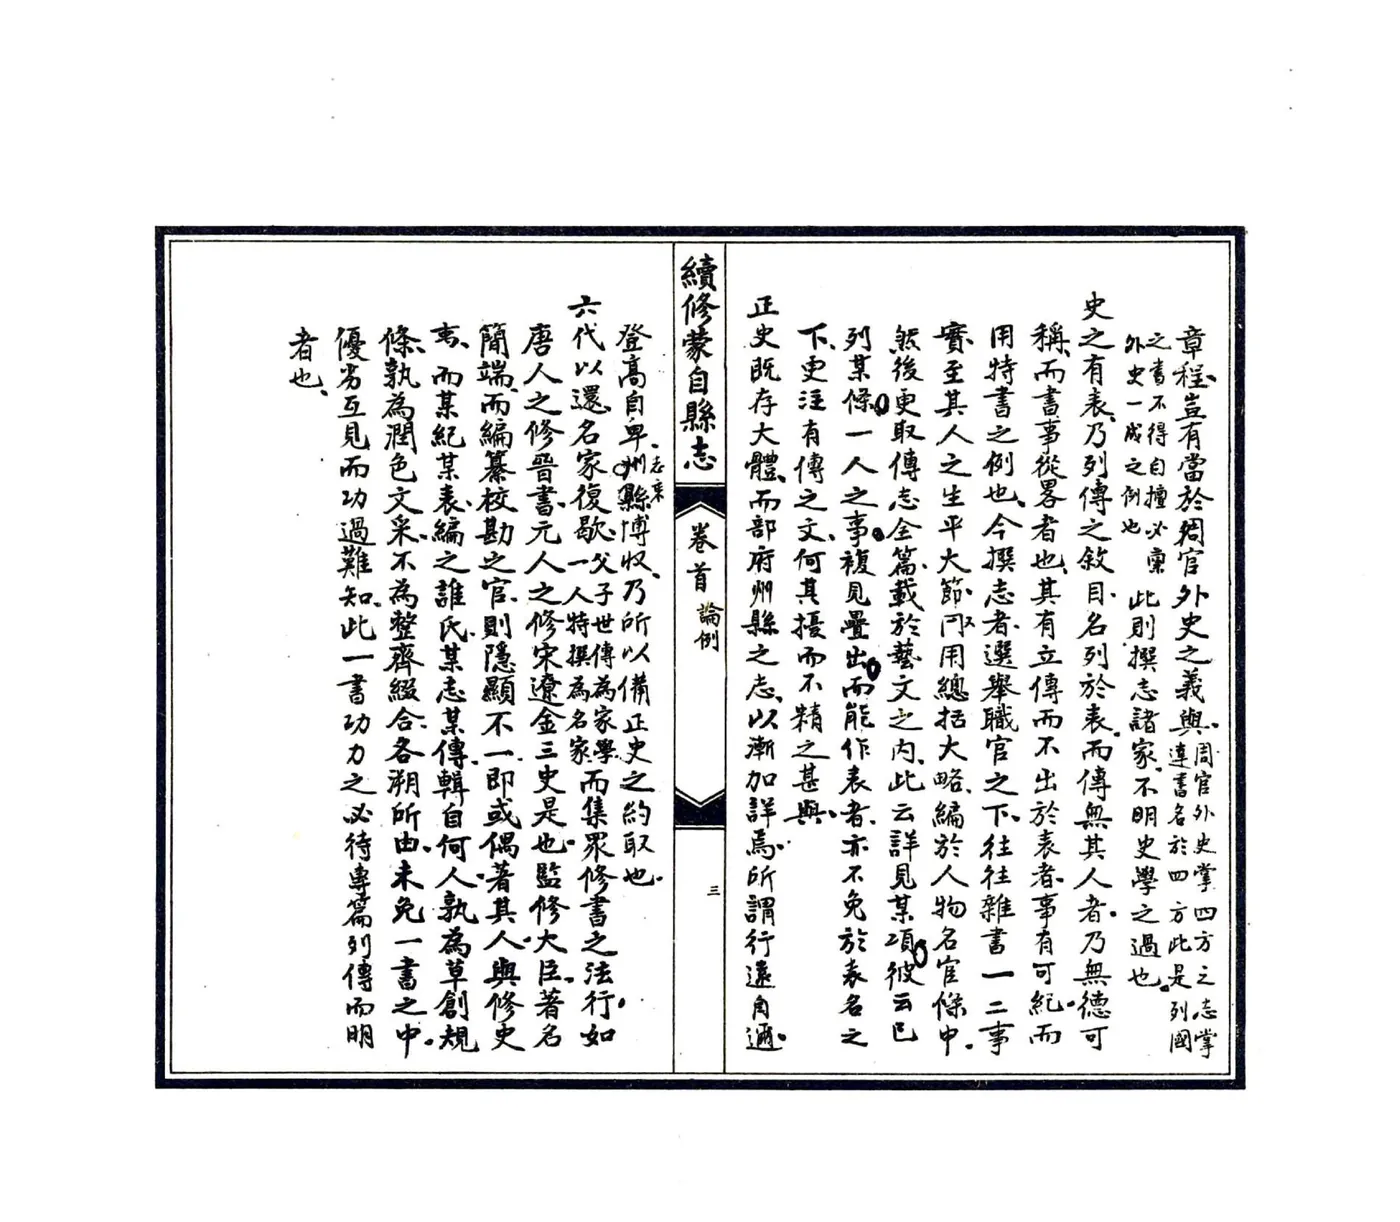 章程豈有當於周官外史之義與周官外史掌四方之志掌達書名於四方此是列國
之書不得自擅必稟外史一成之例也此則撰志諸家不明史學之過也
史之有表乃列傳之敘目名列於表而傳無其人者乃無德可
稱而書事從畧者也其有立傳而不出於表者事有可紀而
用特書之例也今撰志者選舉職官之下往往雜書一二事
實至其人之生平大節又用總括大略編於人物名宦條中
然後更取傳志全篇載於藝文之内此云詳見某項彼云已
列某條一人之事複見疊出而能作表者亦不免於表名之
下更注有傳之文何其擾而不精之甚與
正史既存大體而部府州縣之志以漸加詳焉所謂行遠自邇
續修蒙自縣志
卷首 論例
三
登高自卑州縣志乘博收乃所以備正史之約取也
六代以還名家復歇父子世傳為家學一人特撰為名家而集眾修書之法行如
唐人之修晉書元人之修宋遼金三史是也監修大臣著名
簡端而編纂校勘之官則隱顯不一即或偶著其人與修史
事而某紀某表編之誰氏某志某傳輯自何人孰為草創規
條孰為潤色文采不為整齊綴合各溯所由未免一書之中
優劣互見而功過難知此一書功力之必待專篇列傳而明
者也